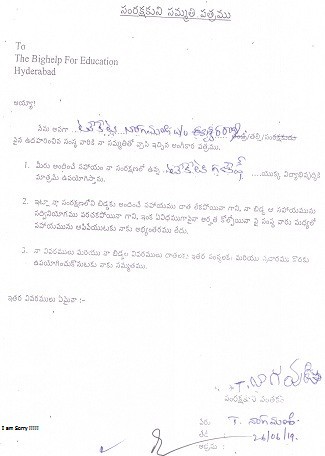 సంరక్షకుని సమ్మతి పత్రము
To
The Bighelp For Education
Hyderabad
అయ్యా!
నేను అనగా నాగమణి తండ్రి/తల్లి/సంరక్షకుడు
పైన ఉదహరించిన సంస్థ వారికి నా సమ్మతితో వ్రాసి ఇచ్చిన అంగీకార పత్రము.
1. మీరు అందించే సహాయం నా సంరక్షణలో ఉన్న యొక్క విద్యాభివృద్ధికి
మాత్రమే ఉపయోగిస్తాను.
2. ఇట్లా నా సంరక్షణలోని బిడ్డకు అందించే సహాయము దాత లేకపోయినా గాని, నా బిడ్డ ఆ సహాయమును
సద్వినియోగము పరచకపోయినా గాని, ఇంక ఏవిధముగానైనా అర్హత కోల్పోయినా పై సంస్థ వారు మధ్యలో
సహాయమును ఆపివేయుటకు నాకు అభ్యంతరము లేదు.
3. నా వివరములు మరియు నా బిడ్డల వివరములు ఇతర సంస్థలకు మరియు ప్రచారము కొరకు
ఉపయోగించుకొనుటకు నాకు సమ్మతము.
ఇతర వివరములు ఏమైనా :-
T. నాగమణి
సంరక్షకుని సంతకం
పేరు T. నాగమణి
తేది 26/06/19.
I am Sorry !!!!!